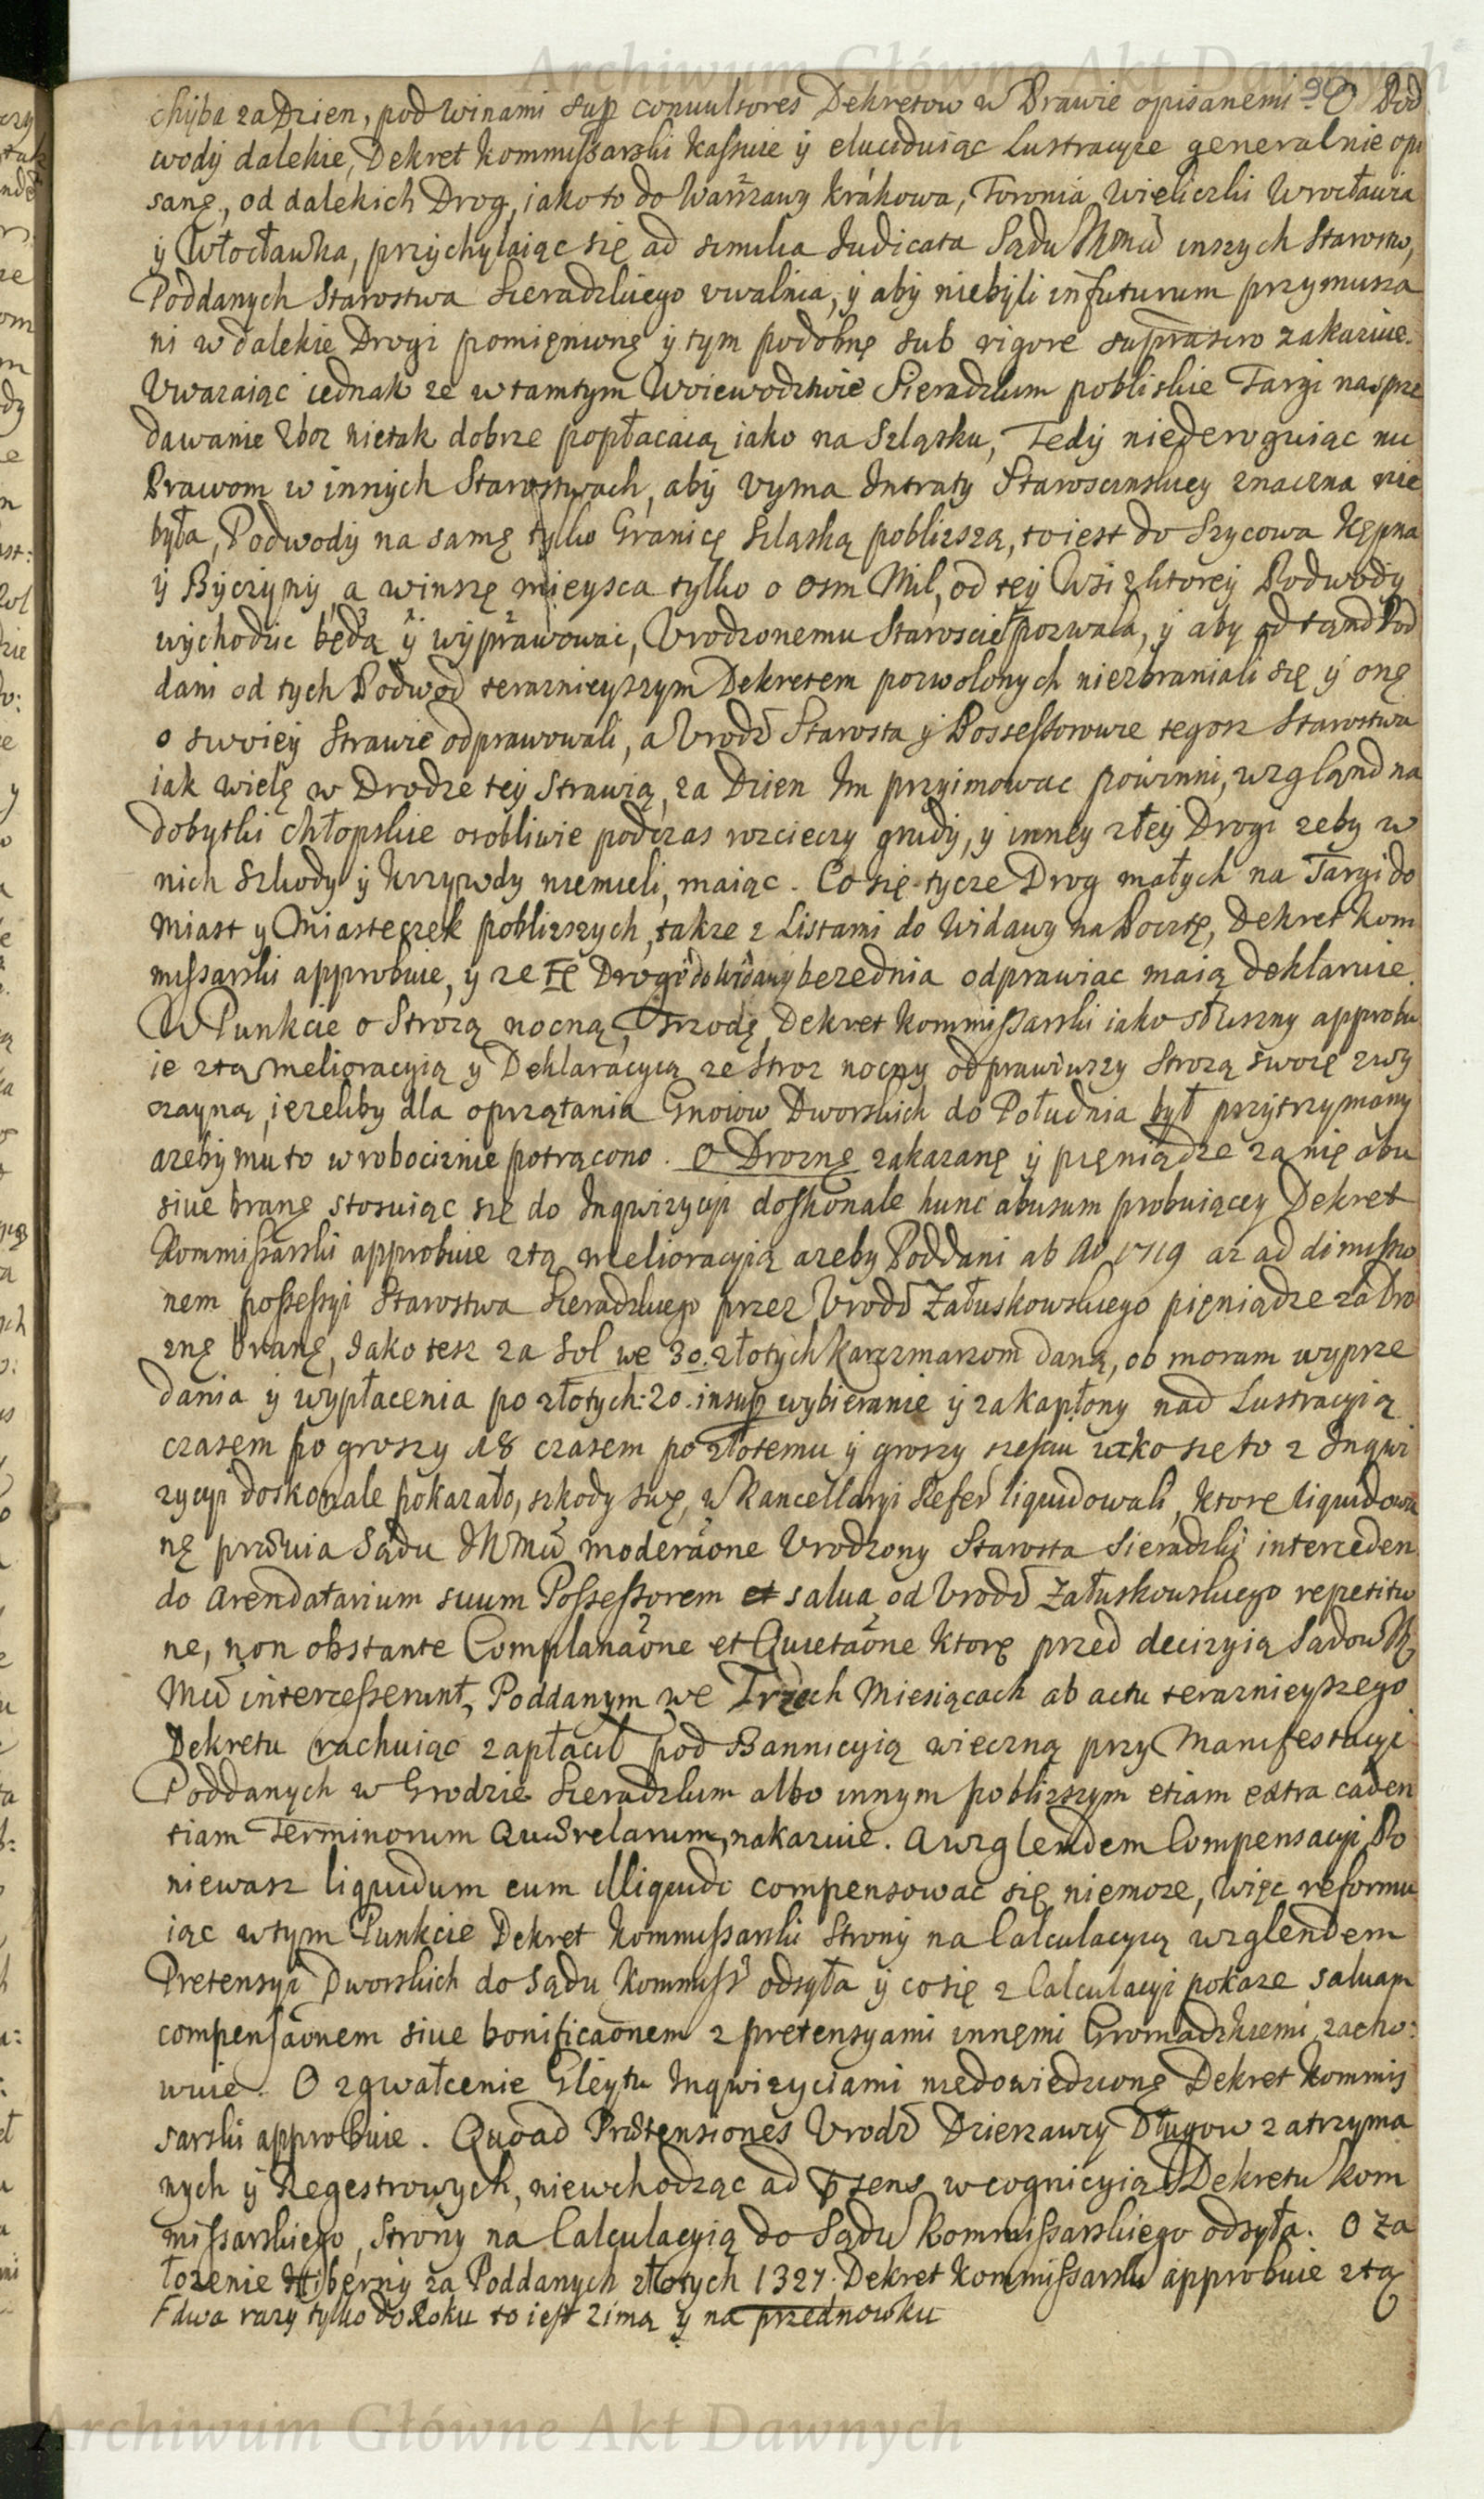 Archiwum Główne Akt Dawnych
90
chyba za Dzien, pod winami sup convulsores Dekretow w Prawie opisanemi. O Pod
wody dalekie, Dekret Kommissarski kassuie y eluciduiąc Lustracyie generalnie opi
sanę, od dalekich Drog, iako to do Warszawy Krakowa, Toronia, Wieliczki Wrocławia
y Włocławka, przychylaiąc się ad similia Iudicata Sądu inszych Starostw,
Poddanych Starostwa Sieradzkiego uwalnia, y aby niebyli in futurum przymusza
ni w dalekie Drogi pomięnionę y tym podobnę sub rigore zakazuie.
Uwazaiąc iednak ze w tamtym Woiewodztwie Sieradzkim pobliskie Targi na sprze
dawanie Zboz nietak dobrze popłacaią iako na Szląsku, Tedy niederoguiąc nic
Prawom w innych Starostwach, aby uyma Intraty Staroscinskiey znaczna nie
była, Podwody na samę tylko Granicę Szląską poblizszą, to iest do Sycowa Kępna
y Byczyny, a w inszę mieysca tylko o osm Mil, od tey Wsi z ktorey Podwody
wychodzic będą y wyprawowac, Urodzonemu Staroscie pozwala, y aby odtąnd Pod
dani od tych Podwod teraznieyszym Dekretem pozwolonych niezbraniali się y onę
o swoiey Strawie odprawowali, a Urodz Starosta y Possessorowie tegoz Starostwa
iak wielę w Drodze tey strawią, za Dzien Im przyimowac powinni, wzgląnd na
dobytki chłopskie osobliwie podczas rozcieczy grudy, y inney złey Drogi zeby w
nich Szkody y krzywdy niemieli, maiąc. Co się tycze Drog małych na Targi do
Miast y Miasteczek poblizszych, takze z Listami do Widawy na Pocztę, Dekret Kom
missarski approbuie, y ze tę Drogę do Widawy bezednia odprawiac maią deklaruie.
W Punkcie o Strozą nocną, Trzodę, Dekret Kommissarski iako słuszny approbu
ie z tą melioracyią y Deklaracyią ze stroz nocny odprawiwszy Strozą swoię zwy
czayną, iezeliby dla oprzątania Gnoiow Dworskich do Południa był przytrzymany
azeby mu to w robociznie potrącono. O Droznę zakazanę y pięniądze za nię abu
sive branę stosuiąc się do Inqwizycyi doskonale hunc abusum probuiącey Dekret
Kommissarski approbuie z tą melioracyią azeby Poddani ab Ao 1719 az ad dimissio
nem possessyi Starostwa Sieradzkiego przez Urodz Załuskowskiego pięniądze za Dro
znę branę, Iako tesz za Sol we 30. złotych Karczmarzom daną, ob moram wyprze
dania y wypłacenia po złotych: 20. insup wybieranie y za kapłony nad Lustracyią
czasem po groszy 18 czasem po złotemu y groszy szesciu iako się to z Inqwi
zycyi doskonale pokazało, szkody swę, w Kancellaryi Refer liquidowali, ktorę liquidowa
nę prævia Sądu moderaone Urodzony Starosta Sieradzki interceden
do Arendatarium suum Possessorem et salva od Urodz Załuskowskiego repetitio
ne, non obstante Complanaone et Quietaone ktorę przed decizyią Sądow
intercesserunt, Poddanym we Trzech Miesiącach ab actu terazniejszego
Dekretu rachuiąc zapłacił pod Bannicyią wieczną przy Manifestacyi
Poddanych w Grodzie Sieradzkim albo innym poblizszym etiam extra caden
tiam Terminorum Quærelarum, nakazuie. A wzglendem Compensacyi Po
niewasz liquidum cum illiquido compensowac się niemoze, więc reformu
iąc w tym Punkcie Dekret Kommissarski Strony na Calculacyią wzglendem
Pretensyi Dworskich do Sądu Kommiss odsyła y co się z Calculacyi pokaze salvam
compensaonem sive bonificaonem z pretensyami innęmi Gromadzkiemi zacho:
wuie. O zgwałcenie Gleytu Inqwizyciami niedowiedzionę Dekret Kommis
sarski approbuie. Quoad Prætensiones Urodz Dzierzawzy Długow zatrzyma
nych y Regestrowych, niewchodząc ad psens w cognicyią Dekretu Kom
missarskiego, Strony na Calculacyią do Sądu Kommissarskiego odsyła. O za
łozenie Hiberny za Poddanych złotych 1327. Dekret Kommissarski approbuie z tą
F dwa razy tylko do Roku to iest Zimą y na przednowku
Archiwum Główne Akt Dawnych